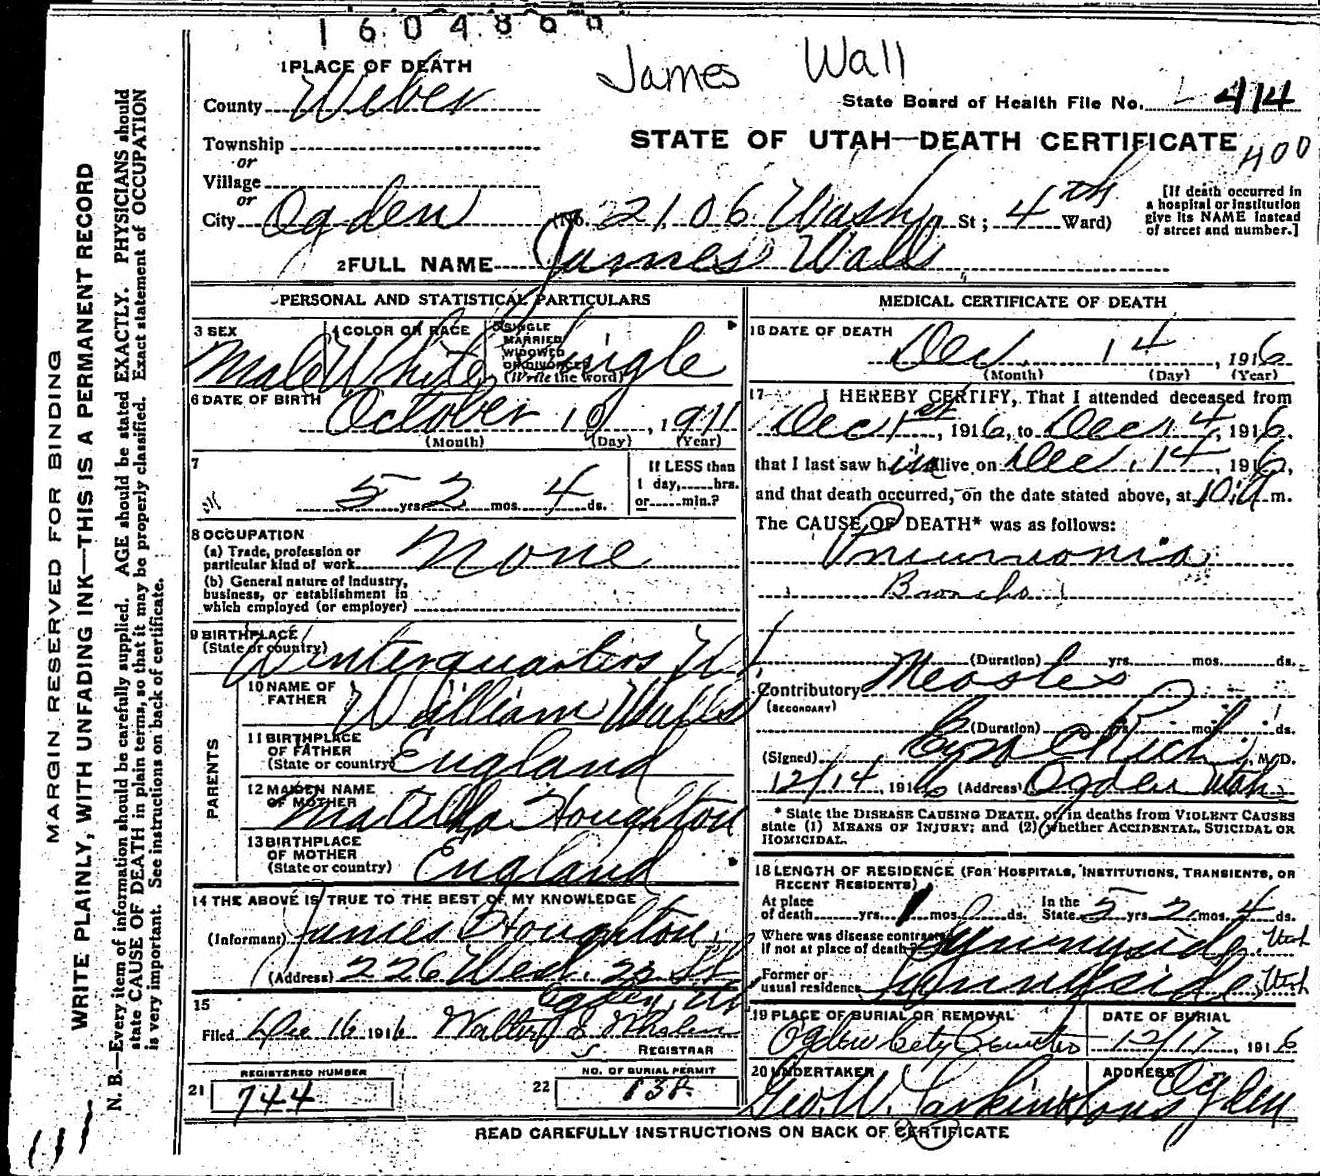 1604866
James Wall
1 PLACE OF DEATH
County Weber
State Board of Health File No. 414
Township
STATE OF UTAH—DEATH CERTIFICATE
400
or
Village
or
City Ogden (No. 2106 Wash St; 4th Ward)
[If death occurred in a hospital or institution give its NAME instead of street and number.]
2 FULL NAME James Walls
PERSONAL AND STATISTICAL PARTICULARS
3 SEX Male
4 COLOR OR RACE White
5 SINGLE MARRIED WIDOWED OR DIVORCED (Write the word) Single
6 DATE OF BIRTH October 10, 1911
(Month) (Day) (Year)
7
5 yrs 2 mos. 4 ds.
If LESS than 1 day, hrs. or min.?
8 OCCUPATION
(a) Trade, profession or particular kind of work None
(b) General nature of Industry, business, or establishment in which employed (or employer)
9 BIRTHPLACE (State or country) Winterquarters Ut
PARENTS
10 NAME OF FATHER William Walls
11 BIRTHPLACE OF FATHER (State or country) England
12 MAIDEN NAME OF MOTHER Matilda Houghton
13 BIRTHPLACE OF MOTHER (State or country) England
14 THE ABOVE IS TRUE TO THE BEST OF MY KNOWLEDGE
(Informant) James Houghton
(Address) 226 West. 20 St
Ogden, Ut
15
Filed Dec 16 1916 Walter
REGISTRAR
21 REGISTERED NUMBER 744
22 NO. OF BURIAL PERMIT 838
MEDICAL CERTIFICATE OF DEATH
16 DATE OF DEATH
Dec 14, 1916
(Month) (Day) (Year)
17 I HEREBY CERTIFY, That I attended deceased from
Dec 1st, 1916, to Dec 14, 1916,
that I last saw him alive on Dec. 14, 1916,
and that death occurred, on the date stated above, at 10 a m.
The CAUSE OF DEATH* was as follows:
Pneumonia
Broncho
(Duration) yrs. mos. ds.
Contributory Measles
(SECONDARY)
(Duration) yrs. mos. ds.
(Signed) Ezra C Rich, M.D.
12/14, 1916 (Address) Ogden Utah
* State the DISEASE CAUSING DEATH, or, in deaths from VIOLENT CAUSES
state (1) MEANS OF INJURY; and (2) whether ACCIDENTAL, SUICIDAL OR
HOMICIDAL.
18 LENGTH OF RESIDENCE (FOR HOSPITALS, INSTITUTIONS, TRANSIENTS, OR
RECENT RESIDENTS)
At place of death yrs. 1 mos. ds. In the State 5 yrs 2 mos. 4 ds.
Where was disease contracted if not at place of death? Sunnyside, Utah
Former or usual residence Sunnyside, Utah
19 PLACE OF BURIAL OR REMOVAL Ogden City Cemetery
DATE OF BURIAL 12/17, 1916
20 UNDERTAKER Geo. W. Larkin & Sons
ADDRESS Ogden
READ CAREFULLY INSTRUCTIONS ON BACK OF CERTIFICATE
MARGIN RESERVED FOR BINDING
WRITE PLAINLY, WITH UNFADING INK—THIS IS A PERMANENT RECORD
N. B.—Every item of information should be carefully supplied. AGE should be stated EXACTLY. PHYSICIANS should
state CAUSE OF DEATH in plain terms, so that it may be properly classified. Exact statement of OCCUPATION
is very important. See instructions on back of certificate.